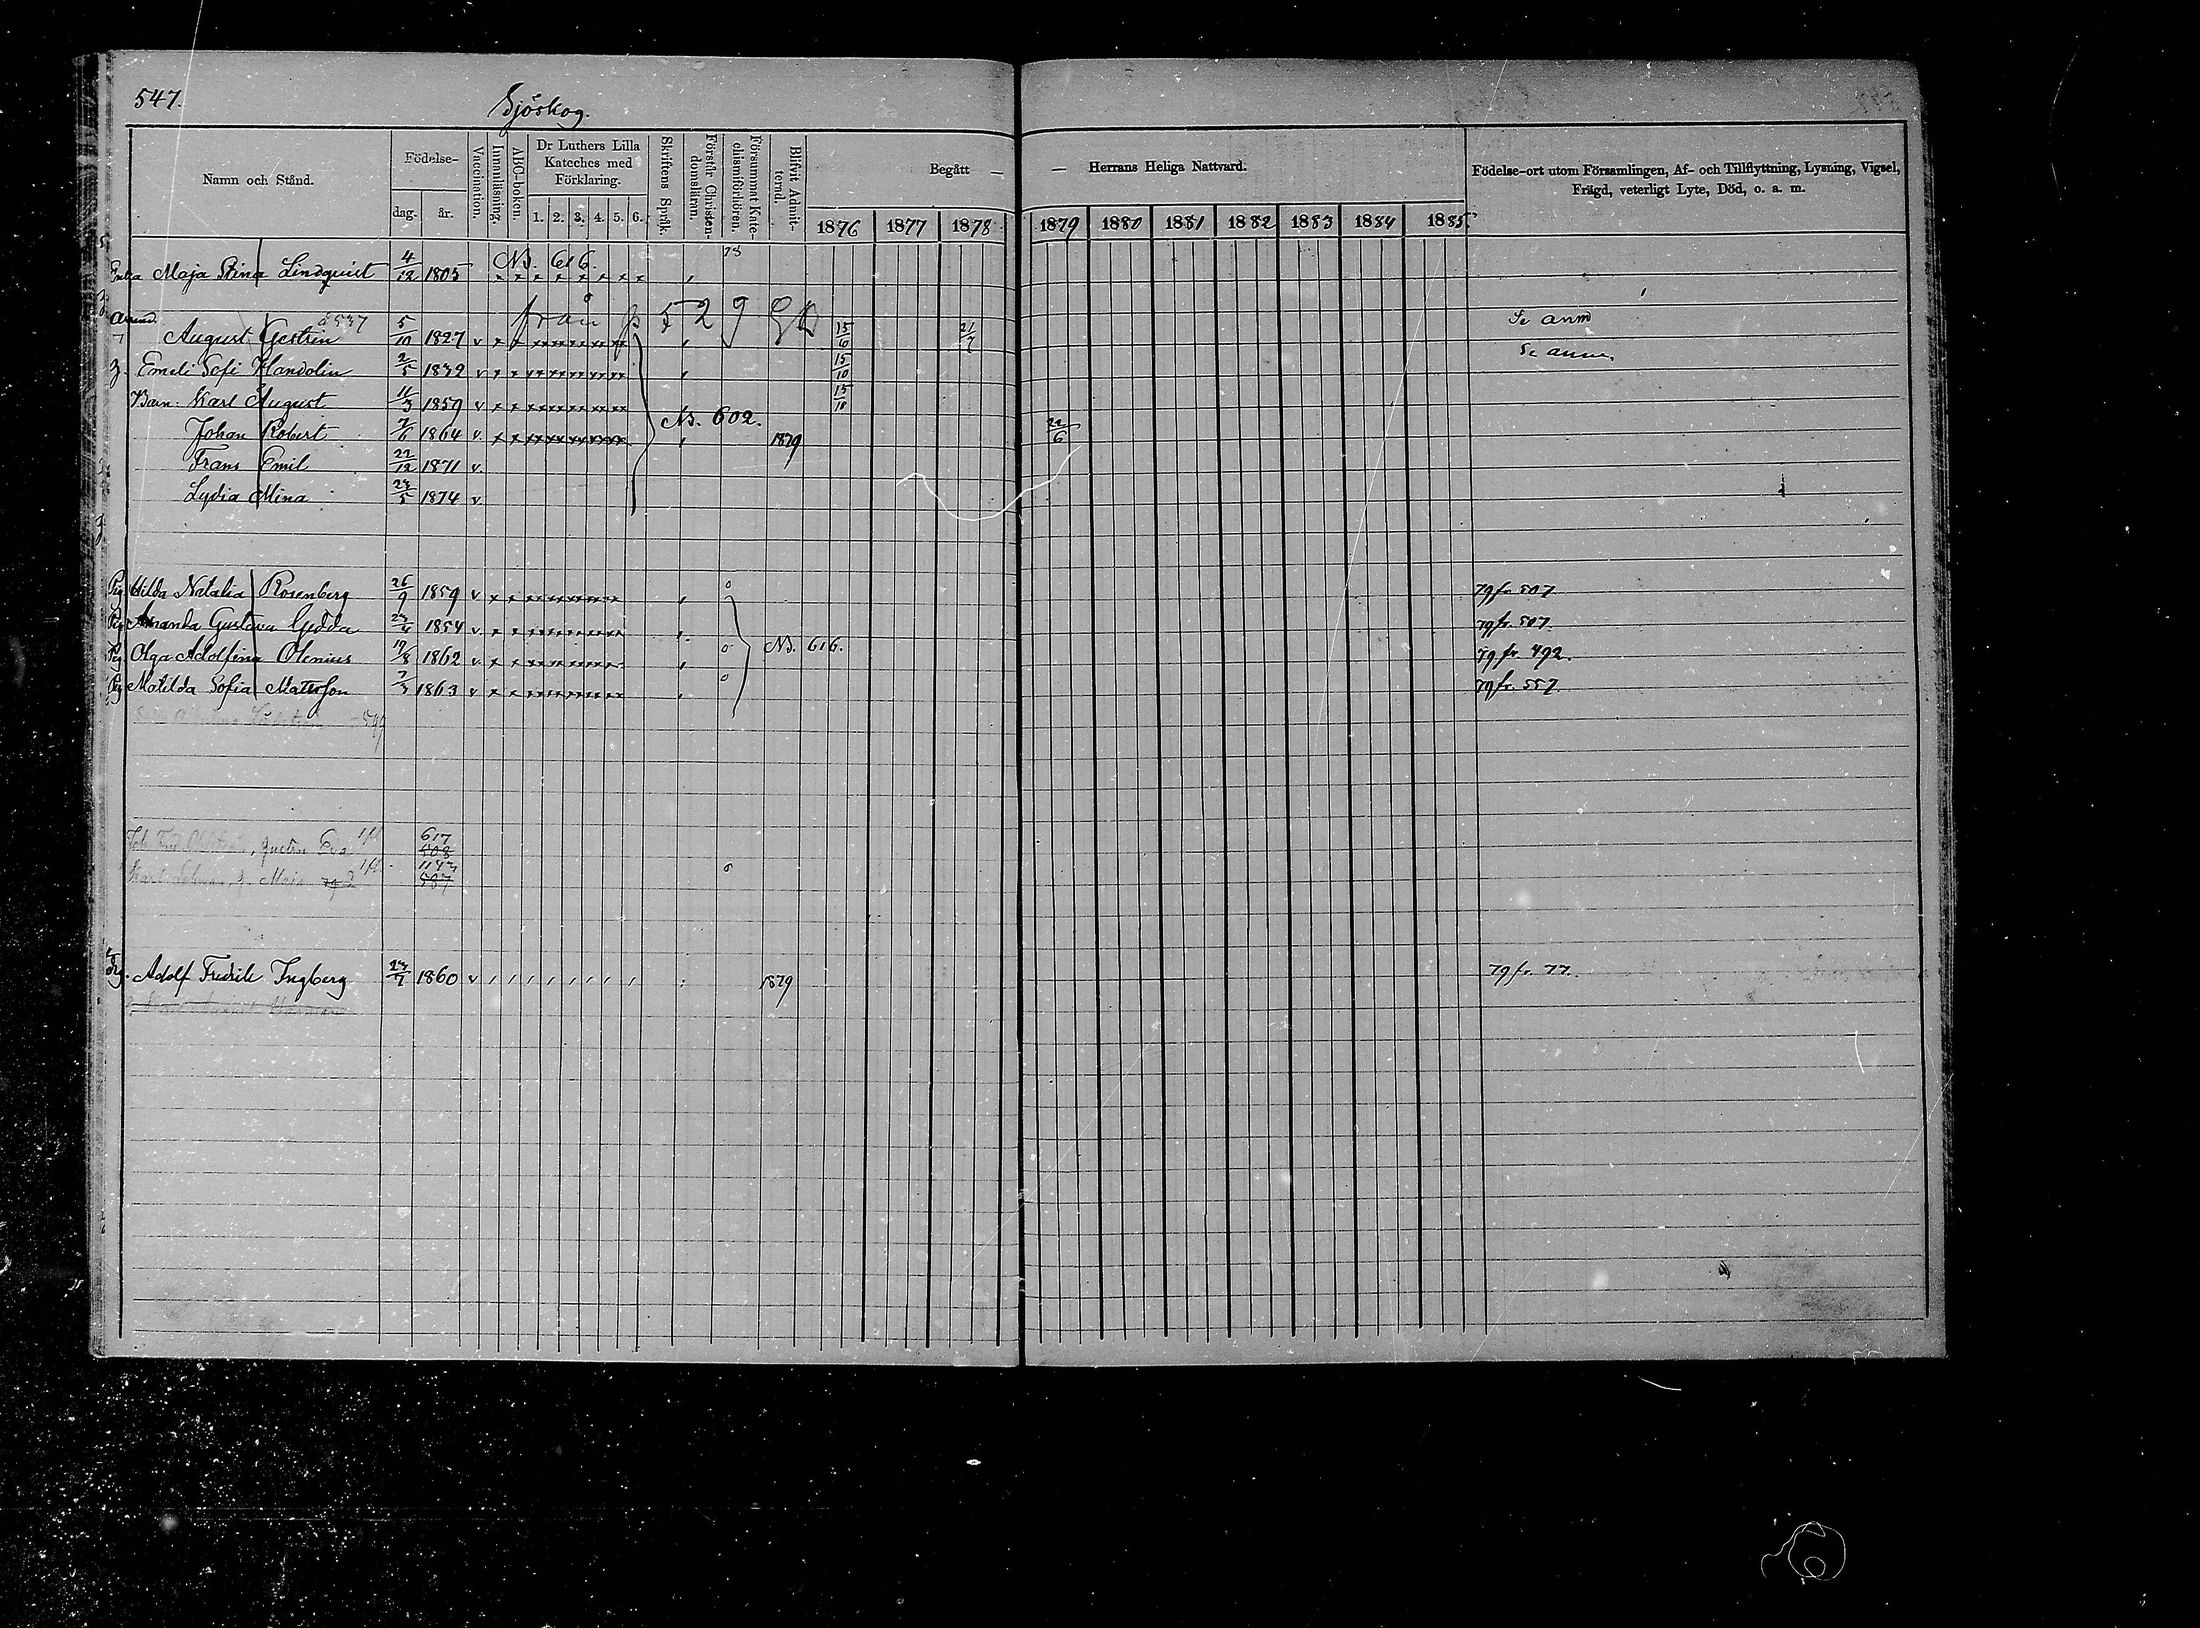 547.
Sjöskog.
Namn och Stånd.
Födelse-
dag. år.
Vaccination.
Innanläsning.
ABC-boken.
Dr Luthers Lilla Kateches med Förklaring.
1. 2. 3. 4. 5. 6.
Skriftens Språk.
Förstår Christendomsläran.
Försummat Katechismiförhören.
Blifvit Admitterad.
Begått — — Herrans Heliga Nattvard.
1876 1877 1878 1879 1880 1881 1882 1883 1884 1885
Födelse-ort utom Församlingen, Af- och Tillflyttning, Lysning, Vigsel,
Frägd, veterligt Lyte, Död, o. a. m.
Enka Maja Stina Lindquist 4/12 1805 Ns. 616. 78
från p 529
August Gestrin 5/10 1827 v 15/6 21/7 Se anm
Emeli Sofi Handolin 2/5 1832 v 15/10 Se anm.
Barn: Karl August 11/3 1859 v 15/10
Ns. 602.
Johan Robert 7/6 1864 v. 1879 22/6
Frans Emil 22/12 1871 v.
Lydia Mina 23/5 1874 v.
Pig Hilda Natalia Rosenberg 26/9 1859 v 79 fr 507
Pig Amanda Gustava Gedda 23/4 1854 v. 79 fr 507.
Pig Olga Adolfina Olenius 19/8 1862 v. Ns. 616. 79 fr 492.
Pig Matilda Sofia Matsson 7/3 1863 v 79 fr. 557.
617
508
1143
587
Drg. Adolf Fredrik Ingberg 23/7 1860 v 1879 79 fr. 77.